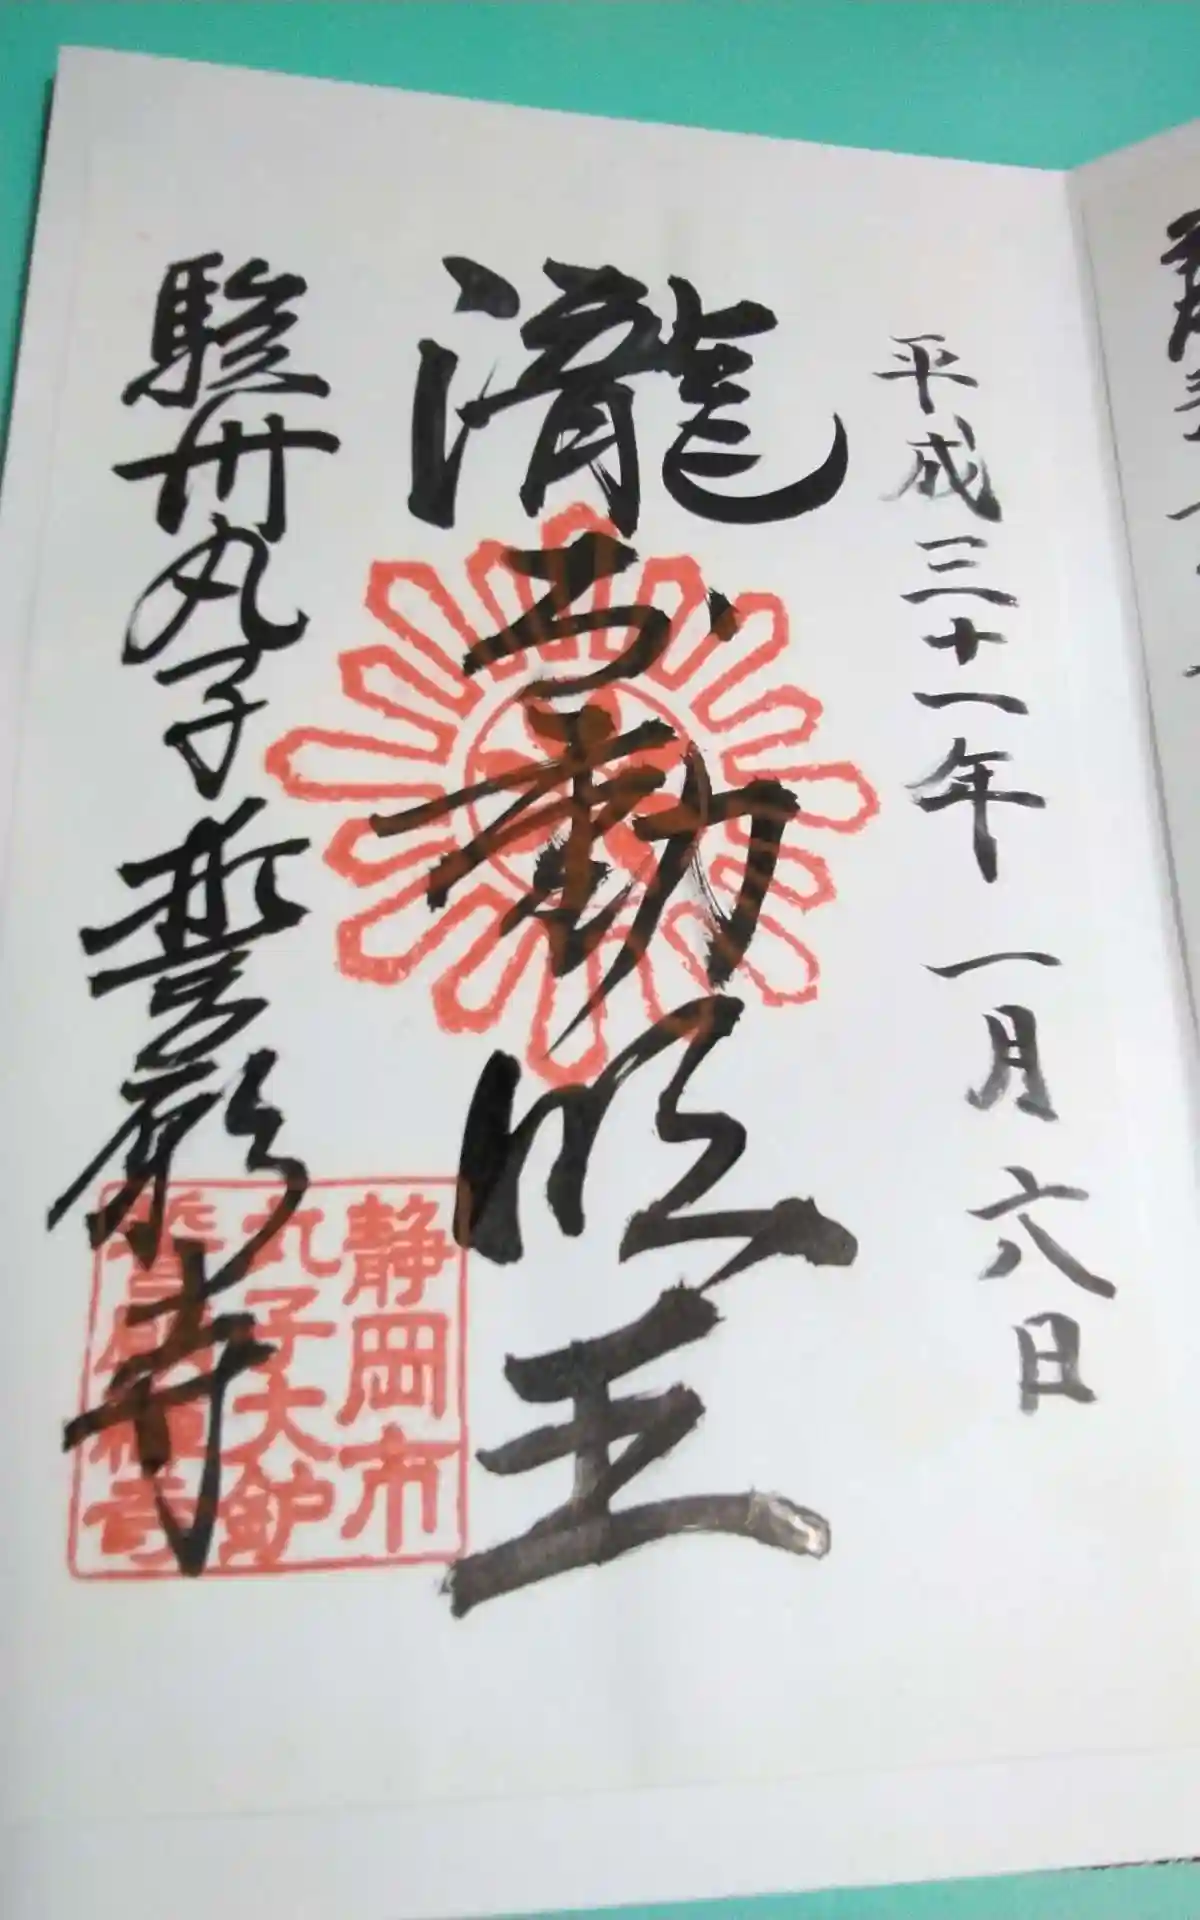 平成三十一年 一月 六日
瀧不動明王
駿州丸子誓願寺
静岡市
丸子大鈩
誓願禅寺